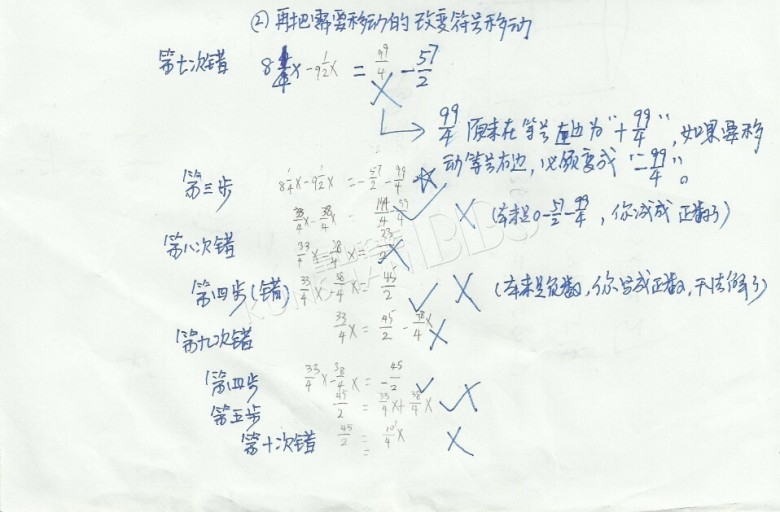 ② 再把需要移动的改变符号移动
第七次错 8 1/4 x - 9 1/2 x = 99/4 - 57/2
99/4 原来在等号左边为"+ 99/4", 如果要移
动等号右边,必须变成"- 99/4"。
第三步 8 1/4 x - 9 1/2 x = - 57/2 - 99/4
(本来是0 - 57/2 - 99/4, 你减成正数了)
第八次错
第四步(错) 33/4 x - 38/4 x = 45/2
(本来是负数,你写成正数,无法解了)
第九次错 33/4 x = 45/2 - 38/4 x
第四步 33/4 x - 38/4 x = - 45/2
第五步 45/2 = 33/4 x + 38/4 x
第十次错 45/2 =